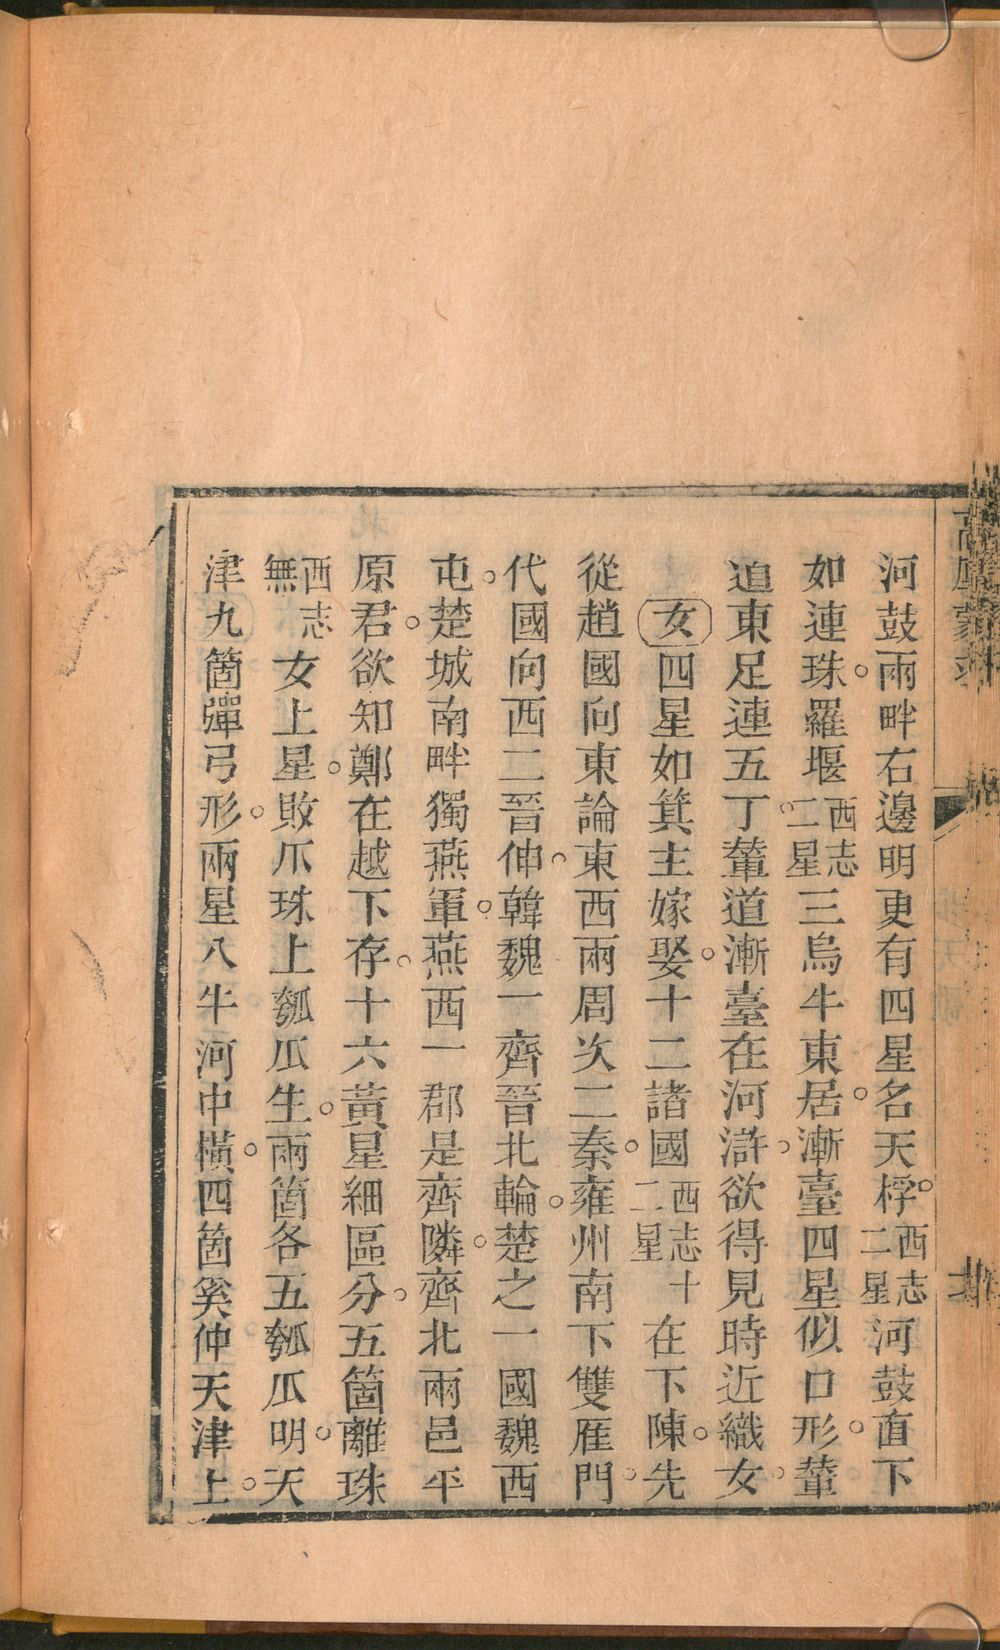 河鼓兩畔右邊明更有四星名天桴。西志二星河鼓直下
如連珠。羅堰西志二星三烏牛東居。漸臺四星似口形。輦
道東足連五丁。輦道漸臺在河滸。欲得見時近織女。
女四星如箕主嫁娶。十二諸國西志十二星在下陳。先
從趙國向東論。東西兩周次二秦。雍州南下雙雁門。
代國向西二晉伸。韓魏一齊晉北輪。楚之一國魏西
屯。楚城南畔獨燕軍。燕西一郡是齊隣。齊北兩邑平
原君。欲知鄭在越下存。十六黃星細區分。五箇離珠
西志無女上星。敗爪珠上瓠瓜生。兩箇各五瓠瓜明。天
津九箇彈弓形。兩星八牛河中橫。四箇奚仲天津上。